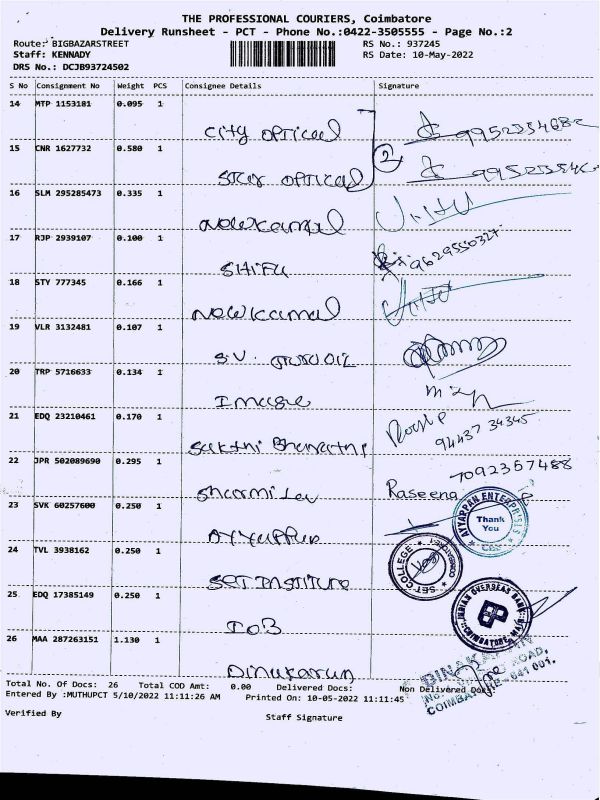 THE PROFESSIONAL COURIERS, Coimbatore
Delivery Runsheet - PCT - Phone No.:0422-3505555 - Page No.:2
Route: BIGBAZARSTREET RS No.: 937245
Staff: KENNADY RS Date: 10-May-2022
DRS No.: DCJB93724502
S No Consignment No Weight PCS Consignee Details Signature
14 MTP 1153181 0.095 1 City optical
15 CNR 1627732 0.580 1 Star optical 2
16 SLM 295285473 0.335 1 Newkamal
17 RJP 2939107 0.100 1 SHIFU 9629550327
18 STY 777345 0.166 1 Newkamal
19 VLR 3132481 0.107 1 S.V.
20 TRP 5716633 0.134 1 Image
21 EDQ 23210461 0.170 1 Sakthi 94437 34345
22 JPR 502089690 0.295 1 Raseena 7092357488
23 SVK 60257600 0.250 1 AYYAPPAN ENTERPRISES Thank You CBE
24 TVL 3938162 0.250 1 SET Institute SET COLLEGE COIMBATORE
25 EDQ 17385149 0.250 1 IOB INDIAN OVERSEAS BANK COIMBATORE MAIN
26 MAA 287263151 1.130 1 Dinakaran
ROAD,
COIMBATORE - 641 001.
Total No. Of Docs: 26 Total COD Amt: 0.00 Delivered Docs: Non Delivered Docs:
Entered By :MUTHUPCT 5/10/2022 11:11:26 AM Printed On: 10-05-2022 11:11:45
Verified By Staff Signature